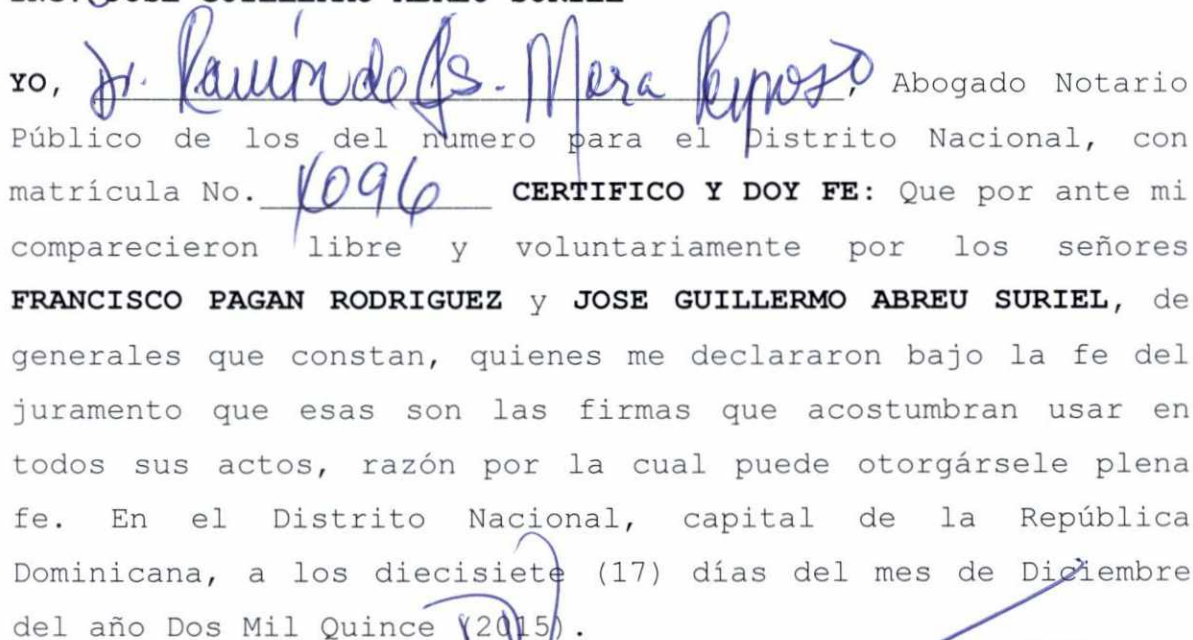 ING. JOSE GUILLERMO ABREU SURIEL
YO, Dr. Ramón de Js. Mora Reynoso, Abogado Notario
Público de los del numero para el Distrito Nacional, con
matrícula No. 1096 CERTIFICO Y DOY FE: Que por ante mi
comparecieron libre y voluntariamente por los señores
FRANCISCO PAGAN RODRIGUEZ y JOSE GUILLERMO ABREU SURIEL, de
generales que constan, quienes me declararon bajo la fe del
juramento que esas son las firmas que acostumbran usar en
todos sus actos, razón por la cual puede otorgársele plena
fe. En el Distrito Nacional, capital de la República
Dominicana, a los diecisiete (17) días del mes de Diciembre
del año Dos Mil Quince (2015).